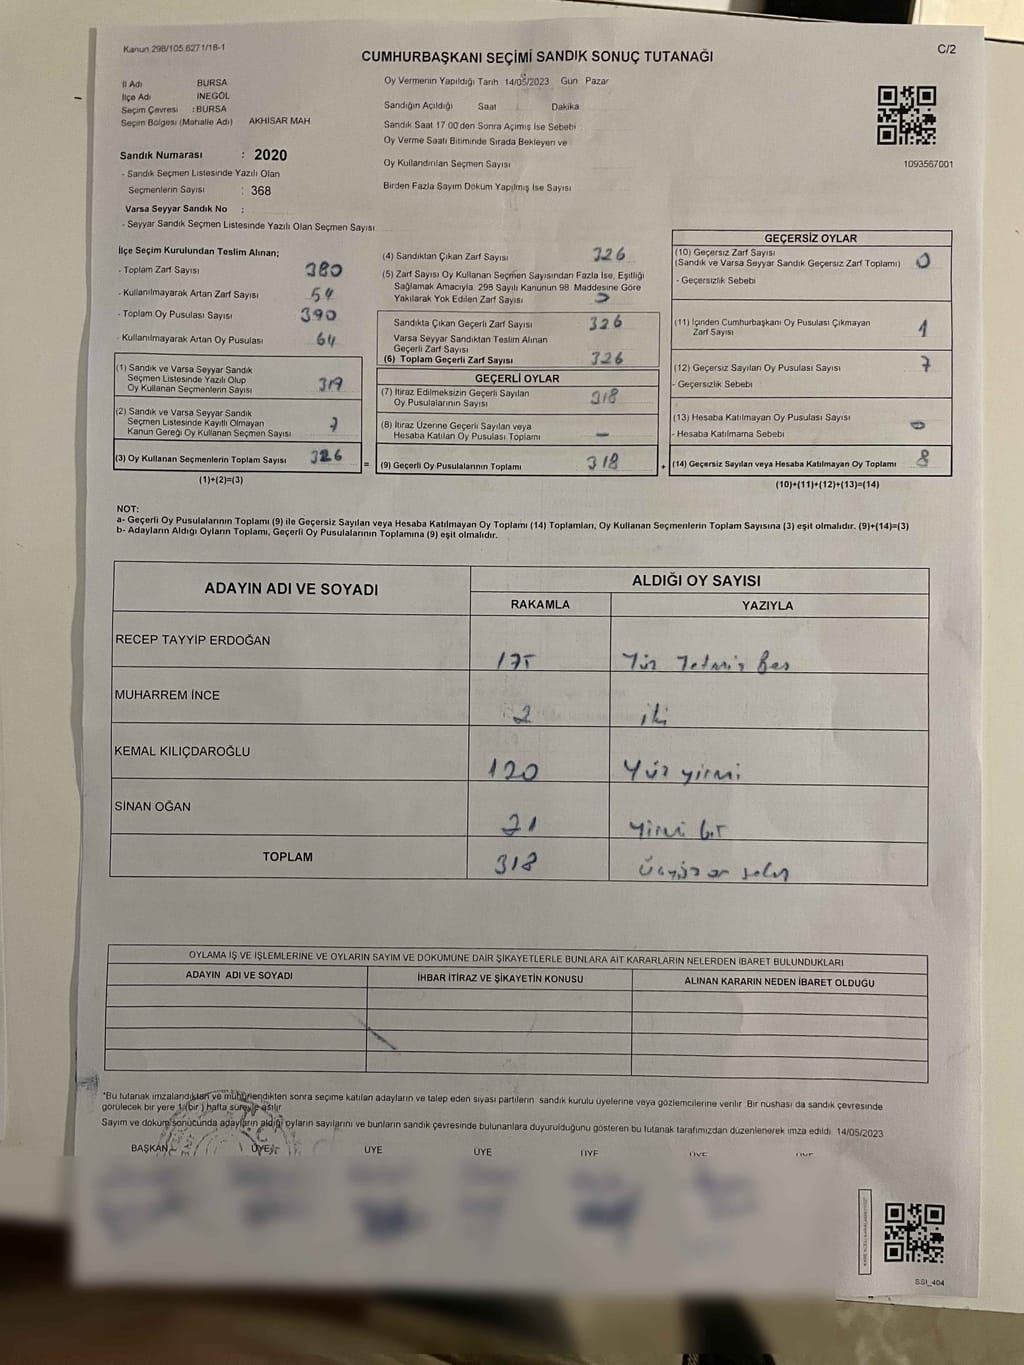 Kanun 298/105 6271/18-1
C/2
CUMHURBAŞKANI SEÇİMİ SANDIK SONUÇ TUTANAĞI
İl Adı BURSA
İlçe Adı İNEGÖL
Seçim Çevresi : BURSA
Seçim Bölgesi (Mahalle Adı) AKHİSAR MAH
Sandık Numarası : 2020
- Sandık Seçmen Listesinde Yazılı Olan
Seçmenlerin Sayısı : 368
Varsa Seyyar Sandık No :
- Seyyar Sandık Seçmen Listesinde Yazılı Olan Seçmen Sayısı
Oy Vermenin Yapıldığı Tarih 14/05/2023 Gün Pazar
Sandığın Açıldığı Saat Dakika
Sandık Saat 17 00'den Sonra Açımış İse Sebebi
Oy Verme Saati Bitiminde Sırada Bekleyen ve
Oy Kullandırılan Seçmen Sayısı
Birden Fazla Sayım Döküm Yapılmış İse Sayısı
1093567001
İlçe Seçim Kurulundan Teslim Alınan;
- Toplam Zarf Sayısı 380
- Kullanılmayarak Artan Zarf Sayısı 54
- Toplam Oy Pusulası Sayısı 390
- Kullanılmayarak Artan Oy Pusulası 64
(1) Sandık ve Varsa Seyyar Sandık
Seçmen Listesinde Yazılı Olup
Oy Kullanan Seçmenlerin Sayısı 319
(2) Sandık ve Varsa Seyyar Sandık
Seçmen Listesinde Kayıtlı Olmayan
Kanun Gereği Oy Kullanan Seçmen Sayısı 7
(3) Oy Kullanan Seçmenlerin Toplam Sayısı 326
(1)+(2)=(3)
(4) Sandıktan Çıkan Zarf Sayısı 326
(5) Zarf Sayısı Oy Kullanan Seçmen Sayısından Fazla İse, Eşitliği
Sağlamak Amacıyla 298 Sayılı Kanunun 98. Maddesine Göre
Yakılarak Yok Edilen Zarf Sayısı
Sandıkta Çıkan Geçerli Zarf Sayısı 326
Varsa Seyyar Sandıktan Teslim Alınan
Geçerli Zarf Sayısı
(6) Toplam Geçerli Zarf Sayısı 326
GEÇERLİ OYLAR
(7) İtiraz Edilmeksizin Geçerli Sayılan
Oy Pusulalarının Sayısı 318
(8) İtiraz Üzerine Geçerli Sayılan veya
Hesaba Katılan Oy Pusulası Toplamı –
= (9) Geçerli Oy Pusulalarının Toplamı 318
GEÇERSİZ OYLAR
(10) Geçersiz Zarf Sayısı 0
(Sandık ve Varsa Seyyar Sandık Geçersiz Zarf Toplamı)
- Geçersizlik Sebebi
(11) İçinden Cumhurbaşkanı Oy Pusulası Çıkmayan
Zarf Sayısı 1
(12) Geçersiz Sayılan Oy Pusulası Sayısı 7
- Geçersizlik Sebebi
(13) Hesaba Katılmayan Oy Pusulası Sayısı 0
- Hesaba Katılmama Sebebi
+ (14) Geçersiz Sayılan veya Hesaba Katılmayan Oy Toplamı 8
(10)+(11)+(12)+(13)=(14)
NOT:
a- Geçerli Oy Pusulalarının Toplamı (9) ile Geçersiz Sayılan veya Hesaba Katılmayan Oy Toplamı (14) Toplamları, Oy Kullanan Seçmenlerin Toplam Sayısına (3) eşit olmalıdır. (9)+(14)=(3)
b- Adayların Aldığı Oyların Toplamı, Geçerli Oy Pusulalarının Toplamına (9) eşit olmalıdır.
ADAYIN ADI VE SOYADI ALDIĞI OY SAYISI
RAKAMLA YAZIYLA
RECEP TAYYİP ERDOĞAN 175 Yüz Yetmiş Beş
MUHARREM İNCE 2 iki
KEMAL KILIÇDAROĞLU 120 Yüz yirmi
SİNAN OĞAN 21 yirmi bir
TOPLAM 318 Üçyüz on sekiz
OYLAMA İŞ VE İŞLEMLERİNE VE OYLARIN SAYIM VE DÖKÜMÜNE DAİR ŞİKAYETLERLE BUNLARA AİT KARARLARIN NELERDEN İBARET BULUNDUKLARI
ADAYIN ADI VE SOYADI İHBAR İTİRAZ VE ŞİKAYETİN KONUSU ALINAN KARARIN NEDEN İBARET OLDUĞU
*Bu tutanak imzalandıktan ve mühürlendikten sonra seçime katılan adayların ve talep eden siyasi partilerin sandık kurulu üyelerine veya gözlemcilerine verilir Bir nushası da sandık çevresinde
görülecek bir yere 1 (bir ) hafta süreyle asılır
Sayım ve döküm sonucunda adayların aldığı oyların sayılarını ve bunların sandık çevresinde bulunanlara duyurulduğunu gösteren bu tutanak tarafımızdan düzenlenerek imza edildi 14/05/2023
BAŞKAN ÜYE ÜYE ÜYE ÜYE ÜYE ÜYE
SSI_404